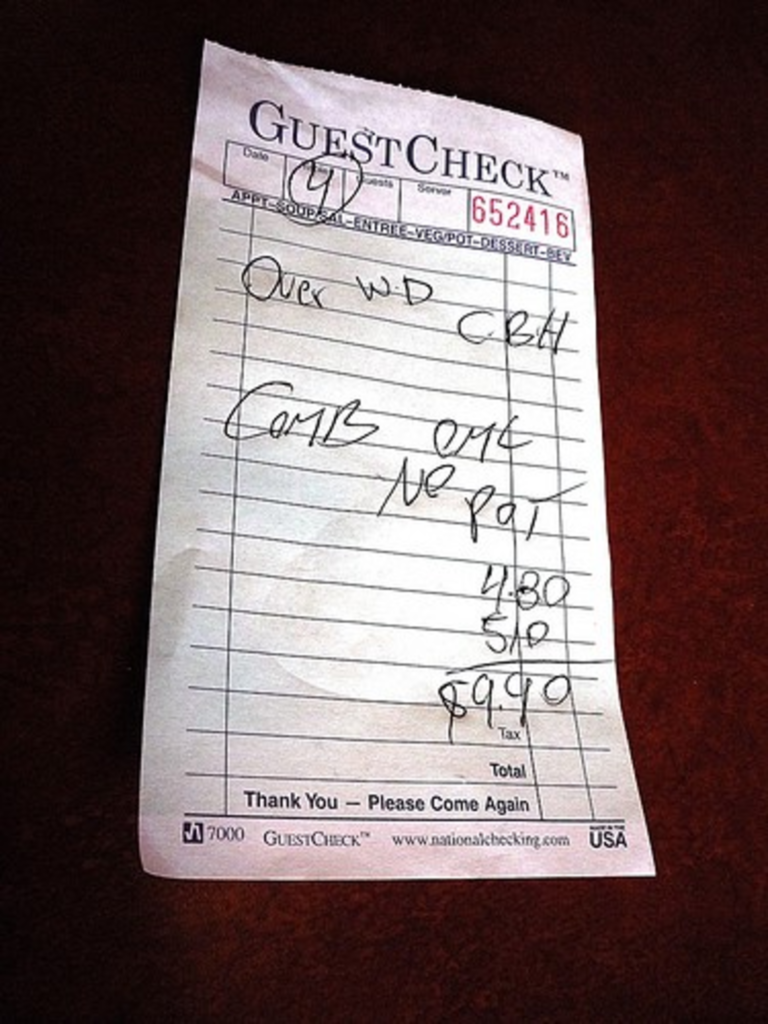 GUESTCHECK™
Date Guests Server
4
652416
APPT-SOUP/SAL-ENTREE-VEG/POT-DESSERT-BEV
Over W.D
C.B.H
COMB OME
NO POT
4.80
510
$9.90
Tax
Total
Thank You — Please Come Again
7000 GUESTCHECK™ www.nationalchecking.com MADE IN THE USA